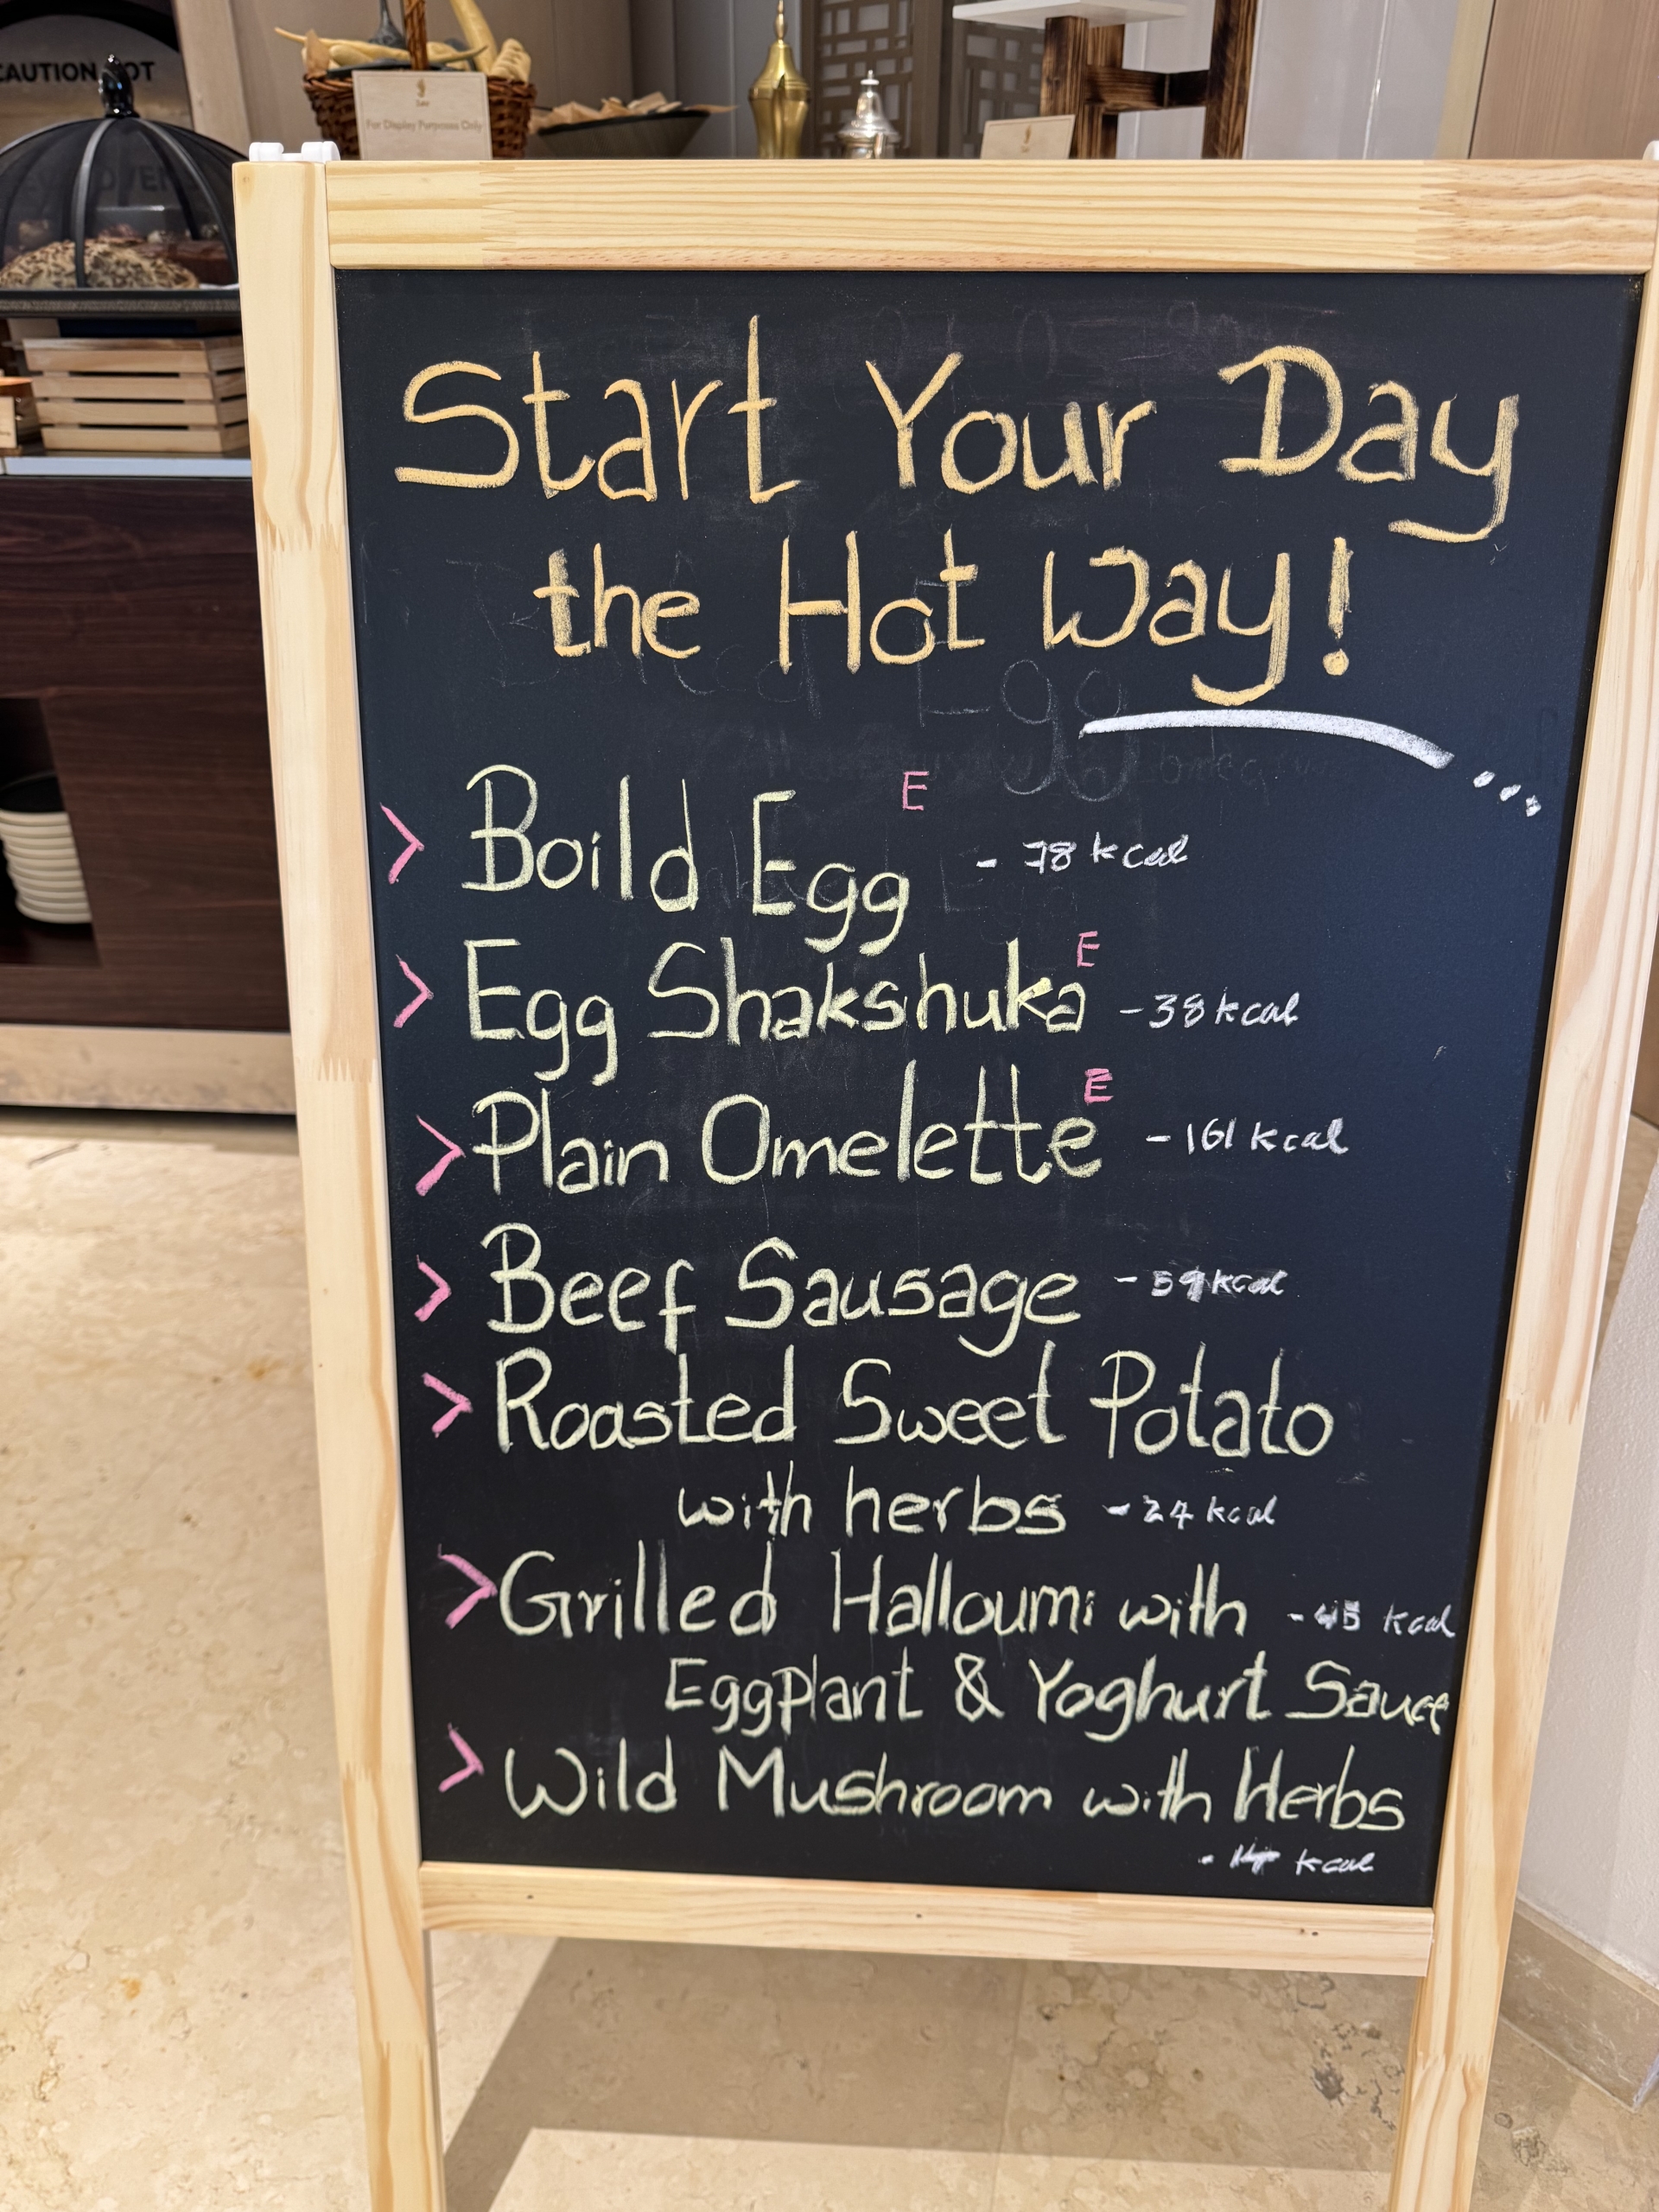 CAUTION HOT
For Display Purposes Only
Start Your Day
the Hot Way!
> Boild Egg E - 78 kcal
> Egg Shakshuka E - 38 kcal
> Plain Omelette E - 161 kcal
> Beef Sausage - 59 kcal
> Roasted Sweet Potato
with herbs - 24 kcal
> Grilled Halloumi with - 45 kcal
Eggplant & Yoghurt Sauce
> Wild Mushroom with Herbs
- kcal